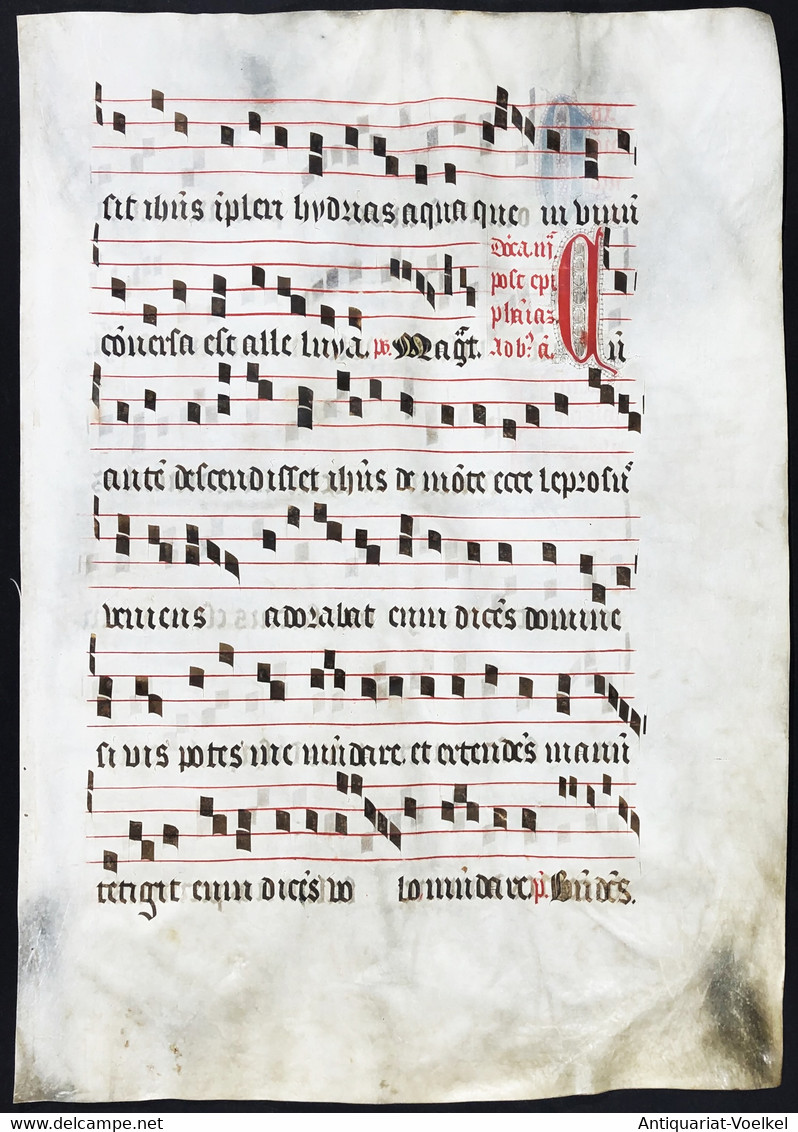 sit ihūs īpleri hydrias aqua que in vinū
cōuersa est alle luya. ps. Magr̄t.
Dōca iij
post epi
phāiaz
ad b. ā.
Cū
autē descendisset ihūs de mōte ecce leprosus
veniens adorabat eum dicēs domine
si vis potes me mūdare. et extendēs manū
tetigit eum dicēs vo lo mūdare. p̄. Bn̄dc̄s.
Antiquariat-Voelkel